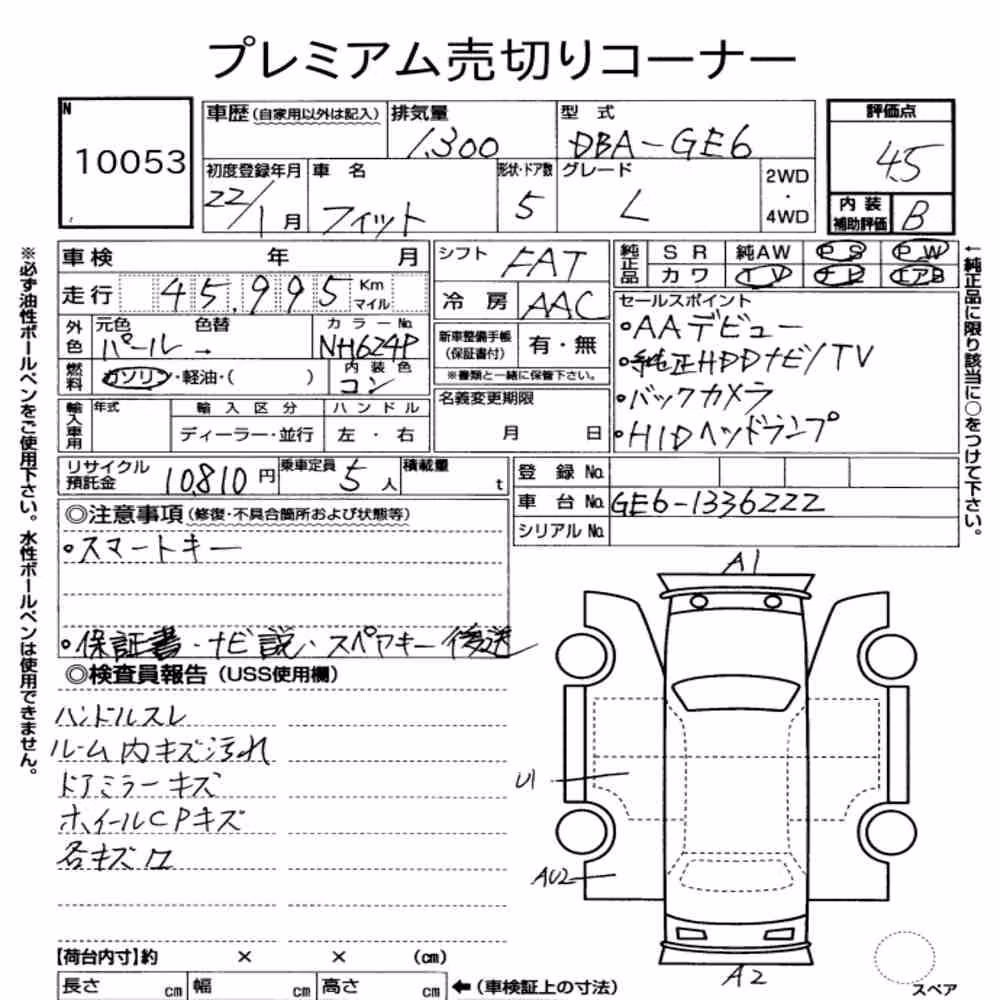 プレミアム売切りコーナー
N 10053
車歴 (自家用以外は記入) 排気量 1,300 型式 DBA-GE6
評価点 4.5
初度登録年月 22/1月 車名 フィット 形状・ドア数 5 グレード L 2WD・4WD
内装補助評価 B
車検 年 月 シフト FAT
純正品 SR 純AW PS PW
走行 45,995 Km マイル 冷房 AAC
カワ TV ナビ エアB
外色 元色 パール 色替 → カラーNo. NH624P
新車整備手帳 (保証書付) 有・無
※書類と一緒に保管下さい。
セールスポイント
・AAデビュー
・純正HDDナビ/TV
・バックカメラ
・HIDヘッドランプ
燃料 ガソリン・軽油・( ) 内装色 コン
名義変更期限 月 日
輸入車用 年式 輸入区分 ハンドル
ディーラー・並行 左・右
リサイクル預託金 10,810円 乗車定員 5人 積載量 t
登録No.
車台No. GE6-1336222
シリアルNo.
◎注意事項 (修復・不具合箇所および状態等)
・スマートキー
・保証書・ナビ説・スペアキー後送
◎検査員報告 (USS使用欄)
ハンドルスレ
ルーム内キズ汚れ
ドアミラーキズ
ホイールCPキズ
各キズ
A1
U1
AU2
A2
スペア
【荷台内寸】約 × × (cm)
長さ cm 幅 cm 高さ cm ←(車検証上の寸法)
※必ず油性ボールペンをご使用下さい。水性ボールペンは使用できません。
←純正品に限り該当に○をつけて下さい。